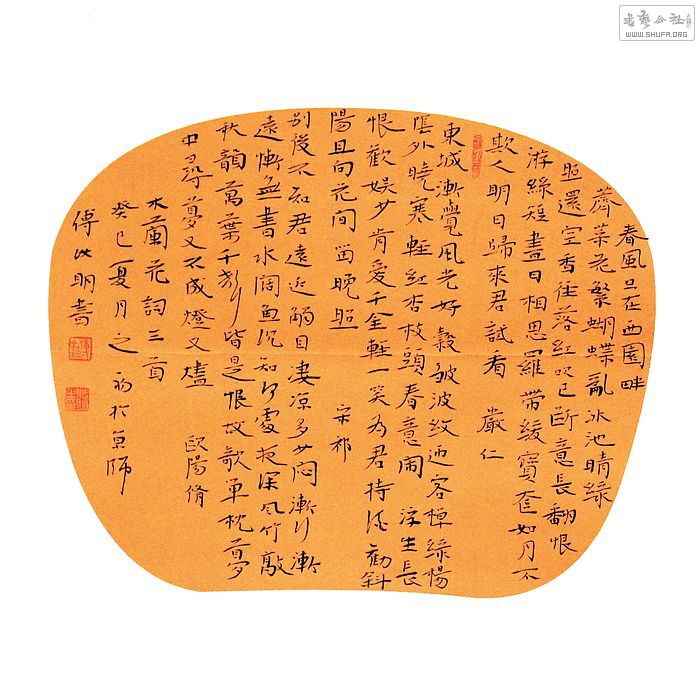 書藝公社
WWW.SHUFA.ORG
春風只在西園畔
薺菜花繁蝴蝶亂冰池晴綠
照還空香徑落紅吹已斷意長翻恨
游絲短盡日相思羅帶緩寶奩如月不
欺人明日歸來君試看 嚴仁
東城漸覺風光好縠皺波紋迎客棹綠楊
陰外曉寒輕紅杏枝頭春意鬧 浮生長
恨歡娛少肯愛千金輕一笑為君持酒勸斜
陽且向花間留晚照 宋祁
別後不知君遠近觸目凄凉多少悶漸行漸
遠漸無書水闊魚沉知何處夜深風竹敲
秋韻萬葉千聲皆是恨故欹單枕夢
中尋夢又不成燈又燼 歐陽脩
木蘭花詞三首
癸巳夏月之初於京師
傅明書